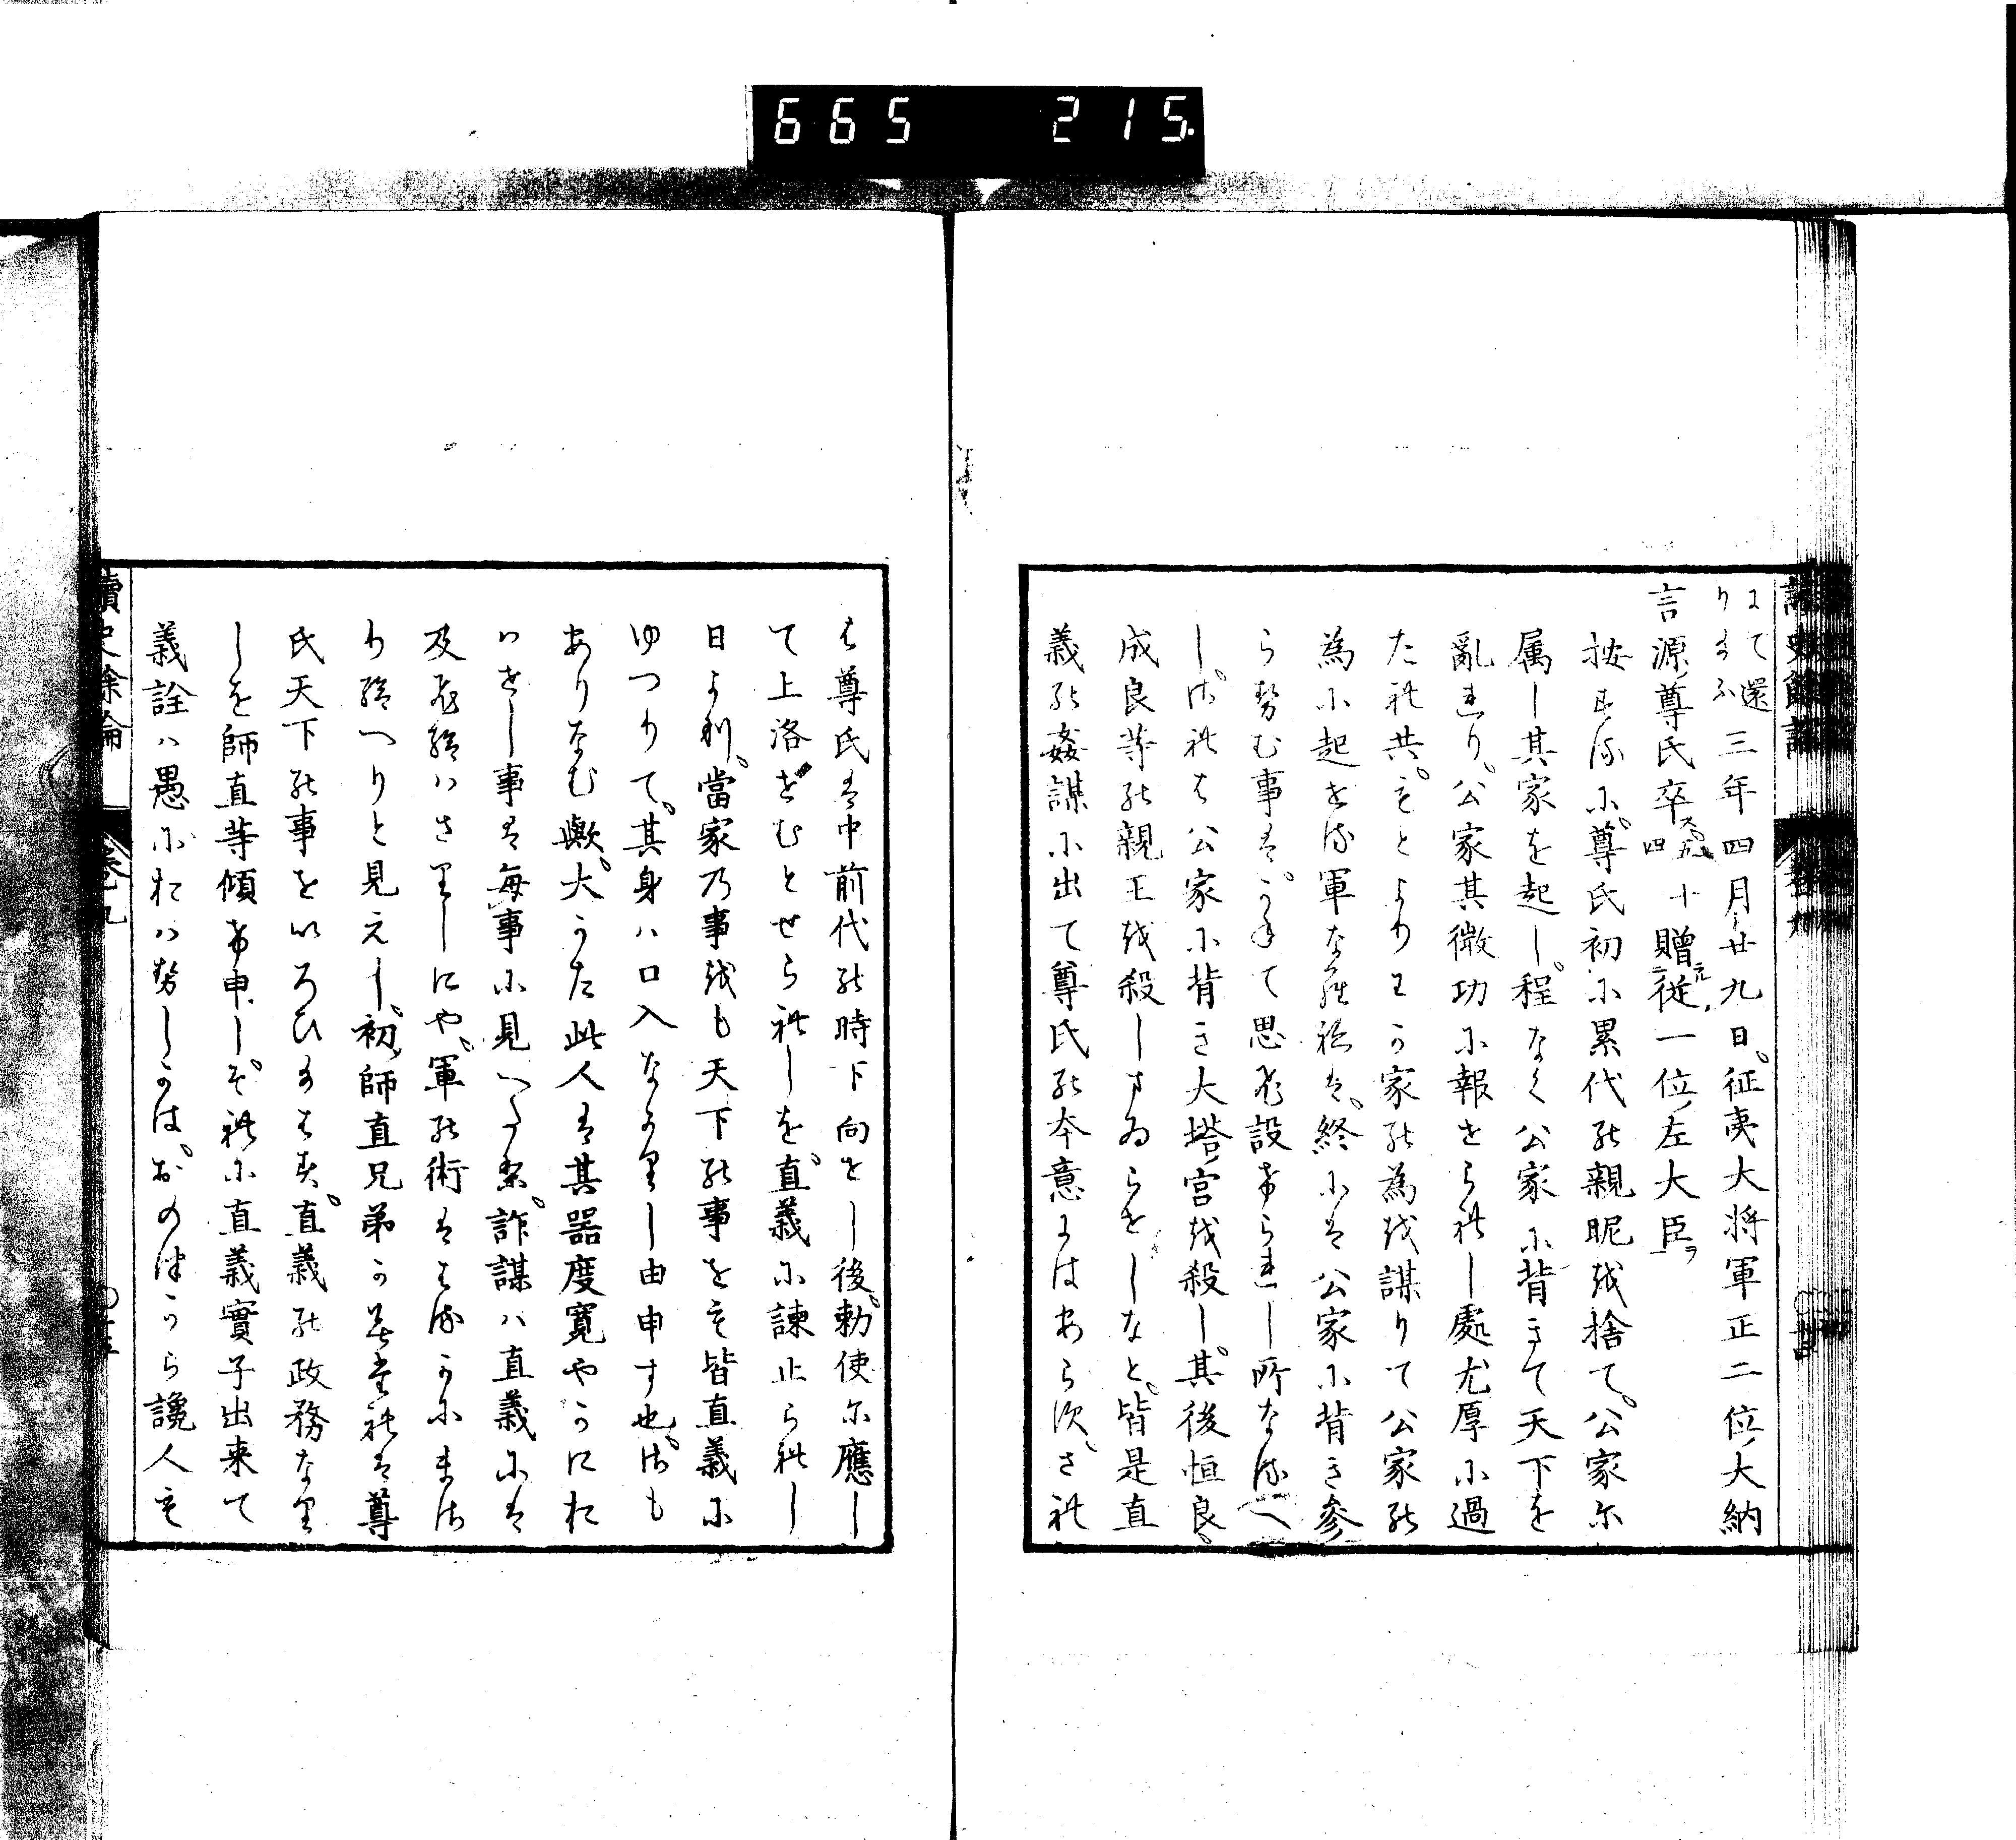 665 215.
讀史餘論
にて還
りまふ 三年四月廿九日。征夷大将軍正二位大納
言源尊氏卒ス五十四贈従一位左大臣ヲ
按するに。尊氏初に累代の親昵を捨て。公家に
属し其家を起し。程なく公家に背きて天下を
亂れり。公家其微功に報せられし處尤厚に過
たれ共。もとよりわか家の為を謀りて公家の
為に起せる軍なられは。終には公家に背き参
らせむ事は。かねて思ひ設けられし所なるへ
し。されは公家に背き大塔宮を殺し。其後恒良。
成良等の親王を殺しまゐらせしなと。皆是直
義の姦謀に出て尊氏の本意にはあらす。され
は尊氏は中前代の時下向せし後。勅使に應し
て上洛せむとせられしを。直義に諫止られし
日より。當家の事をも天下の事をも皆直義に
ゆつりて。其身ハ口入なかりし由申す也。されも
ありなむ歟。大かた此人は其器度寛やかにお
ハせし事は毎事に見へたる。詐謀ハ直義には
及ひ給ハさりしにや。軍の術ははるかにまさ
り給へりと見えし。初師直兄弟か
氏天下の事をいろひのはす。直義の政務なり
しを師直等傾け申しぞれに直義實子出来て
義詮ハ愚におハせしかは。おのつから讒人も
讀史餘論
卷九